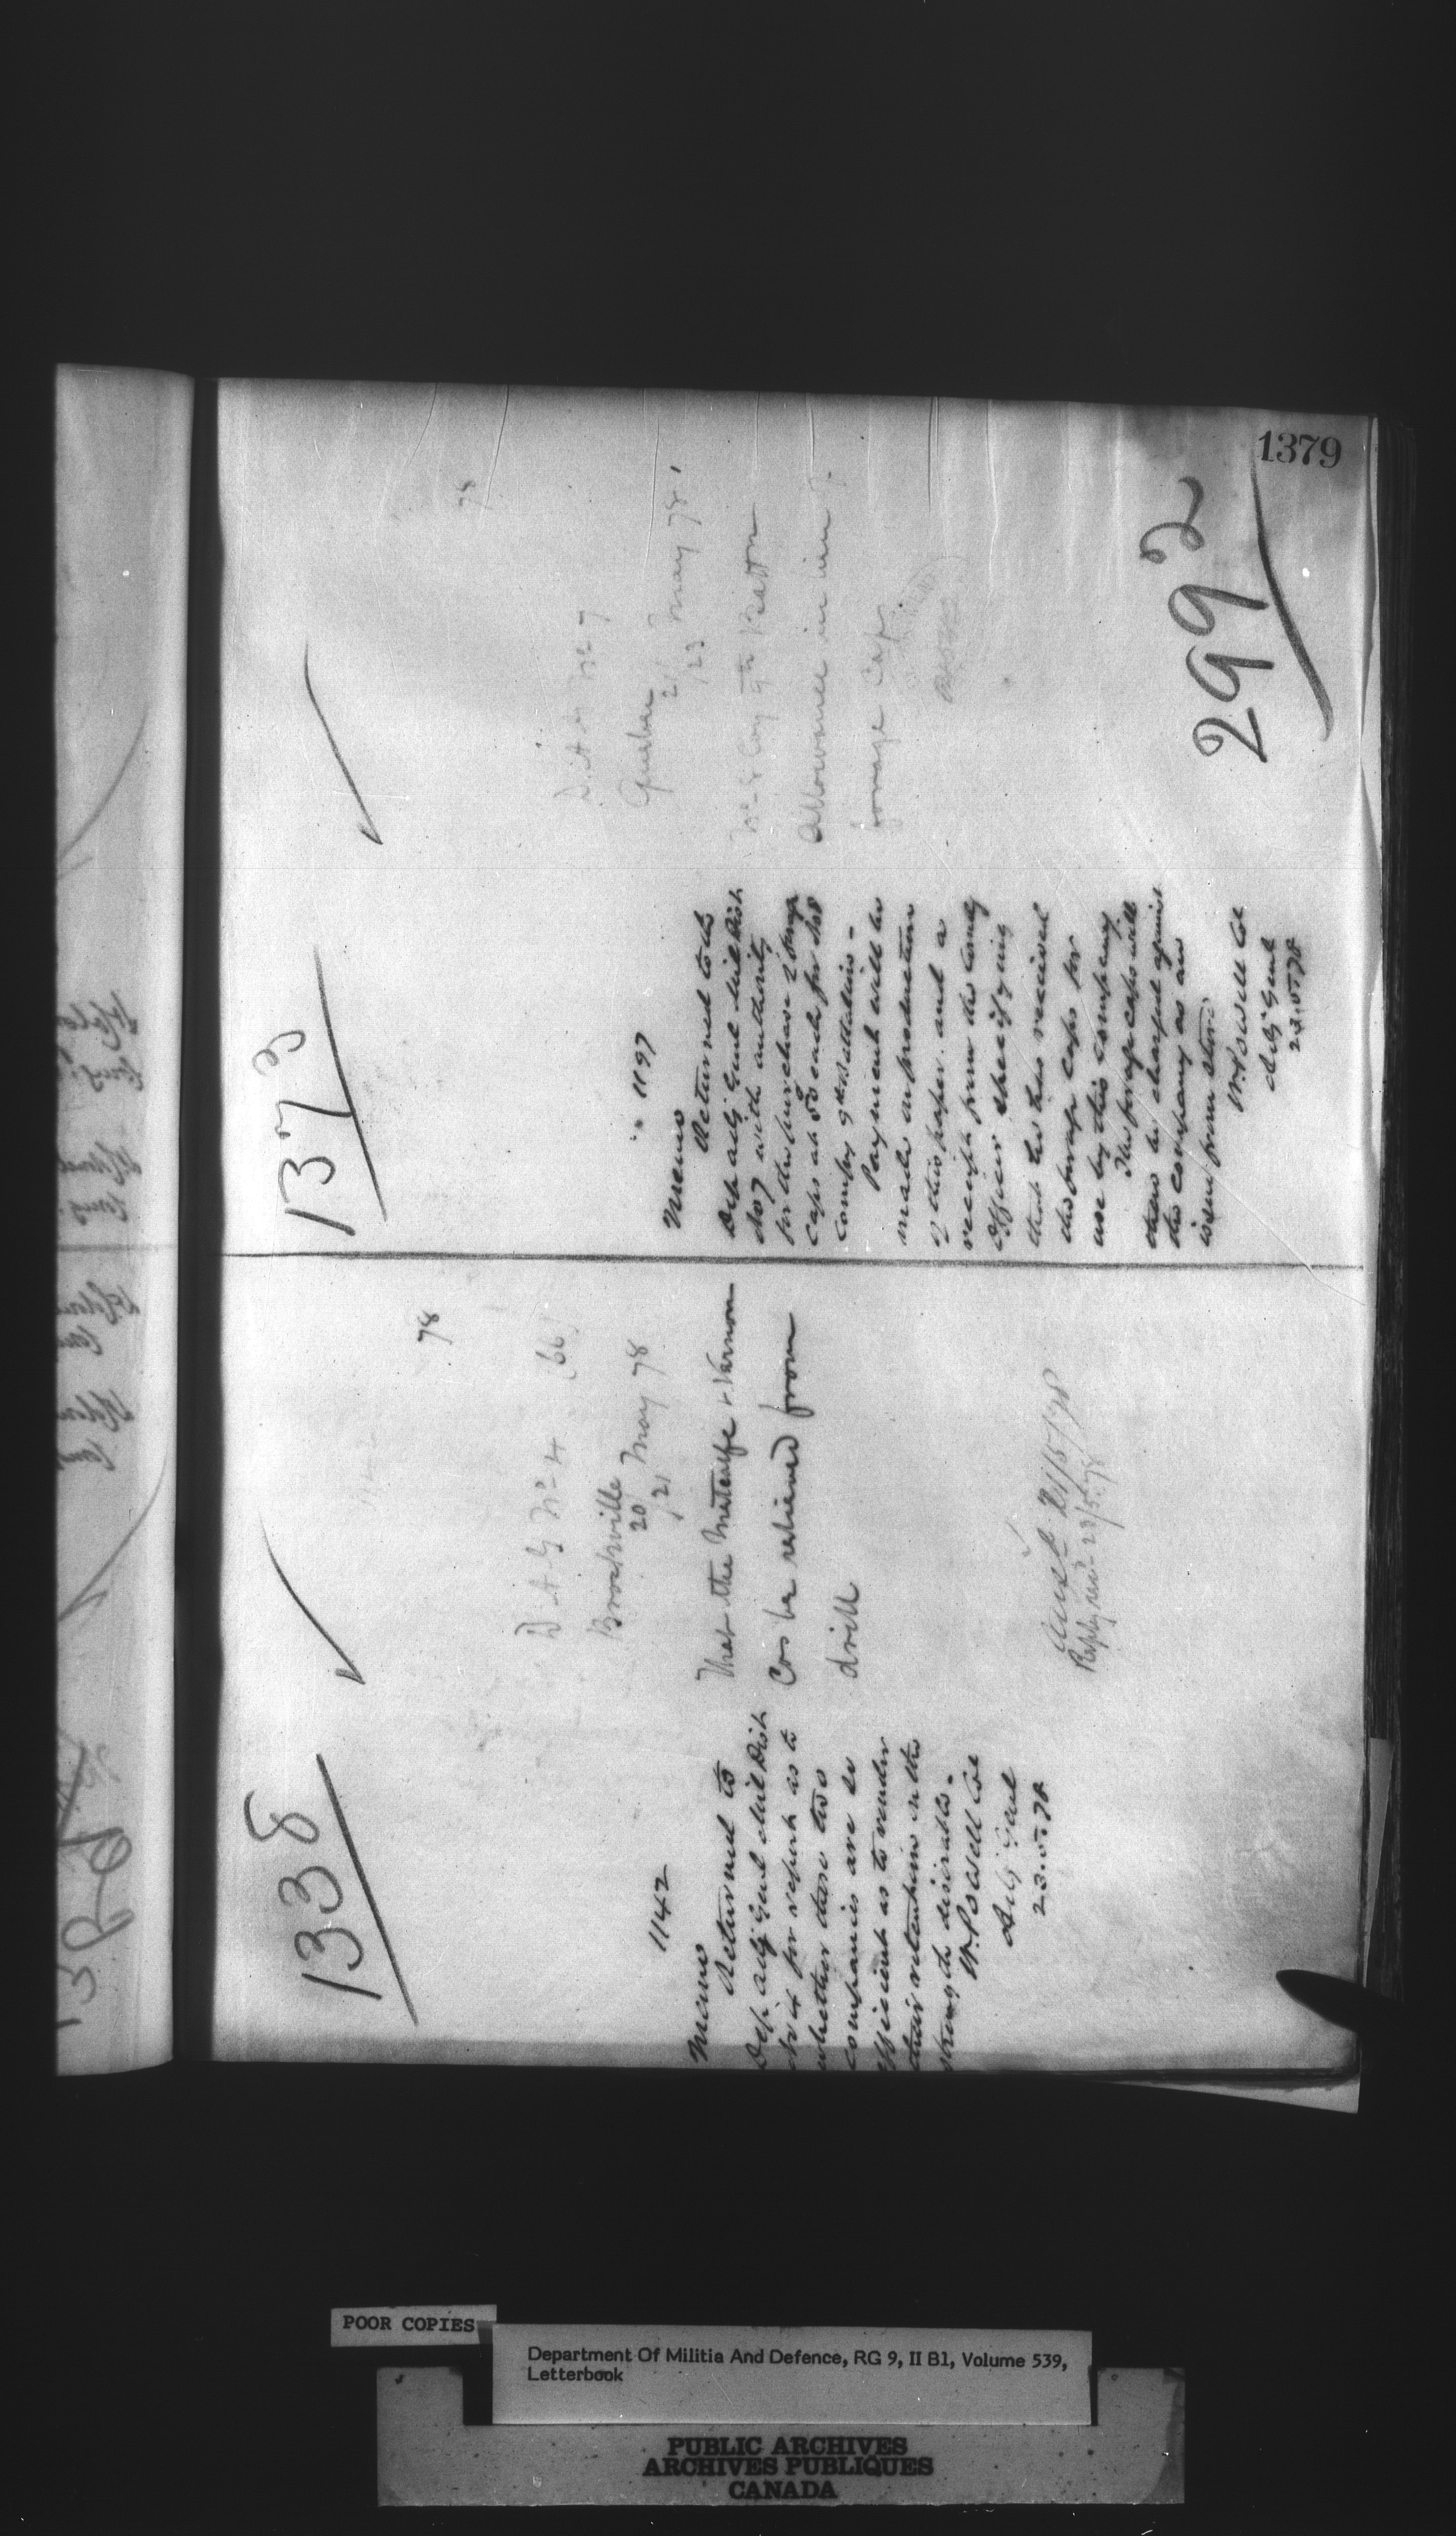 1379
1338
78
D.A.G No 4 (66)
Brockville
20
/21 May 78
That the Metcalfe & Vernon
Cos be relieved from
drill
21/5/78
Reply recd 23/5.78
1142
Memo
Returned to
Dep. adj Genl Mil Dist
No 4 for report as to
whether these two
companies are so
efficient as to render
their retention on the
strength desirable.
W. Powell Col
Adj Genl
23.5.78
1373
78
D.A.G No 7
Quebec
21
/23 May 78
No 8 Coy 9th Battn
Allowance in lieu of
forage Caps
1197
Memo
Returned to the
Dep adj Genl Mil Dist
No 7 with authority
for the purchase 2 forage
caps at 50 each for No 8
Company 9th Battalion -
Payment will be
made on production
of this paper and a
receipt from the Comdg
Officer specifying
that he has received
the forage caps for
use by this company.
The forage caps will
then be charged against
the company as an
issue from store
W. Powell Col
Adj Genl
23.5.78
2992
POOR COPIES
Department Of Militia And Defence, RG 9, II B1, Volume 539,
Letterbook
PUBLIC ARCHIVES
ARCHIVES PUBLIQUES
CANADA